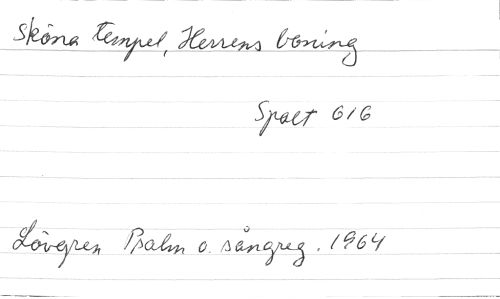 Sköna tempel, Herrens boning
Spalt 616
Lövgren Psalm o. sångreg. 1964